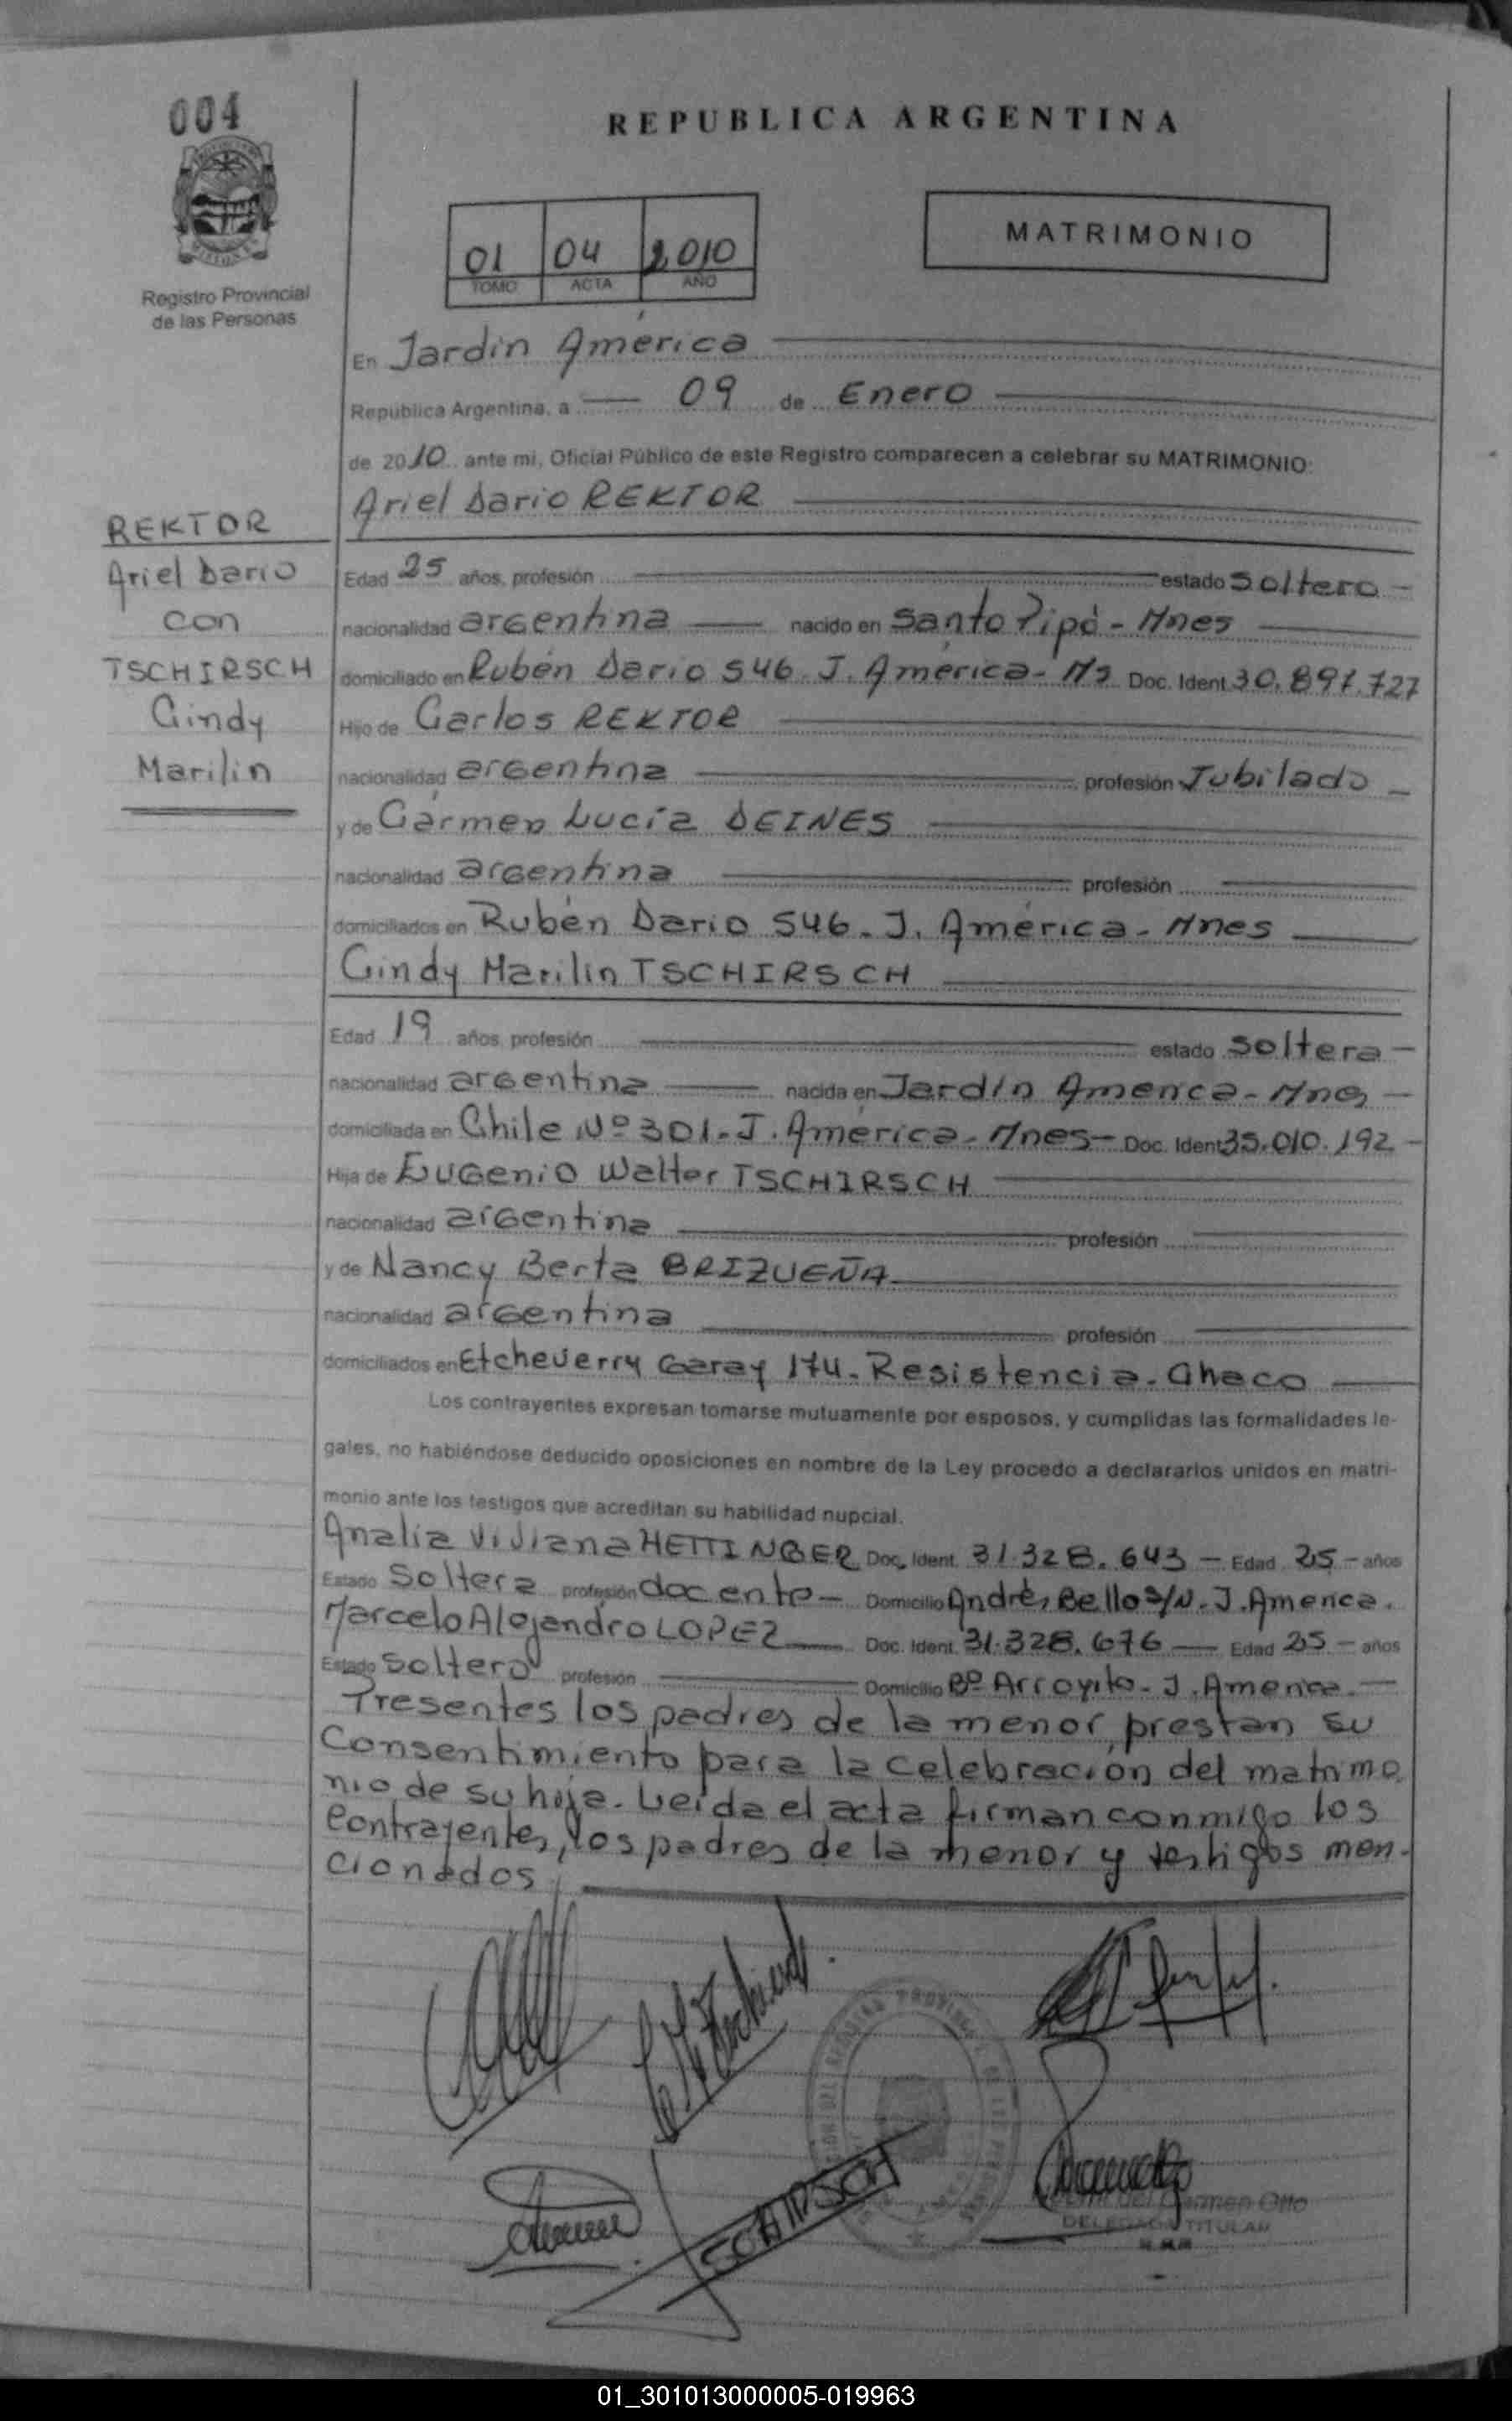 004
REPUBLICA ARGENTINA
01 04 2010
TOMO ACTA AÑO
MATRIMONIO
Registro Provincial
de las Personas
En Jardín América
República Argentina, a 09 de Enero
de 2010 ante mi, Oficial Público de este Registro comparecen a celebrar su MATRIMONIO:
Ariel Dario REKTOR
REKTOR
Ariel Dario
con
TSCHIRSCH
Cindy
Marilin
Edad 25 años, profesión estado Soltero -
nacionalidad argentina nacido en Santo Pipó - Mnes
domiciliado en Rubén Dario 546. J. América - Ms Doc. Ident. 30.897.727
Hijo de Carlos REKTOR
nacionalidad argentina profesión Jubilado -
y de Cármen Lucía DEINES
nacionalidad argentina profesión
domiciliados en Rubén Dario 546. J. América - Mnes
Cindy Marilin TSCHIRSCH
Edad 19 años, profesión estado soltera -
nacionalidad argentina nacida en Jardín America - Mnes -
domiciliada en Chile Nº 301. J. América - Mnes - Doc. Ident. 35.010.192 -
Hija de Eugenio Walter TSCHIRSCH
nacionalidad argentina profesión
y de Nancy Berta BRIZUEÑA
nacionalidad argentina profesión
domiciliados en Etcheverry Garay 174. Resistencia. Chaco
Los contrayentes expresan tomarse mutuamente por esposos, y cumplidas las formalidades le-
gales, no habiéndose deducido oposiciones en nombre de la Ley procedo a declararlos unidos en matri-
monio ante los testigos que acreditan su habilidad nupcial.
Analía Viviana HETTINGER Doc. Ident. 31.328.643 - Edad 25 - años
Estado Soltera profesión docente - Domicilio Andrés Bello S/N. J. America.
Marcelo Alejandro LOPEZ Doc. Ident. 31.328.676 Edad 25 - años
Estado Soltero profesión Domicilio Bº Arroyito - J. America. -
Presentes los padres de la menor, prestan su
Consentimiento para la celebración del matrimo
nio de su hija. Leída el acta firman conmigo los
Contrayentes, los padres de la menor y testigos men-
cionados.
TSCHIRSCH
del Carmen Otto
DELEGADA TITULAR
01_301013000005-019963